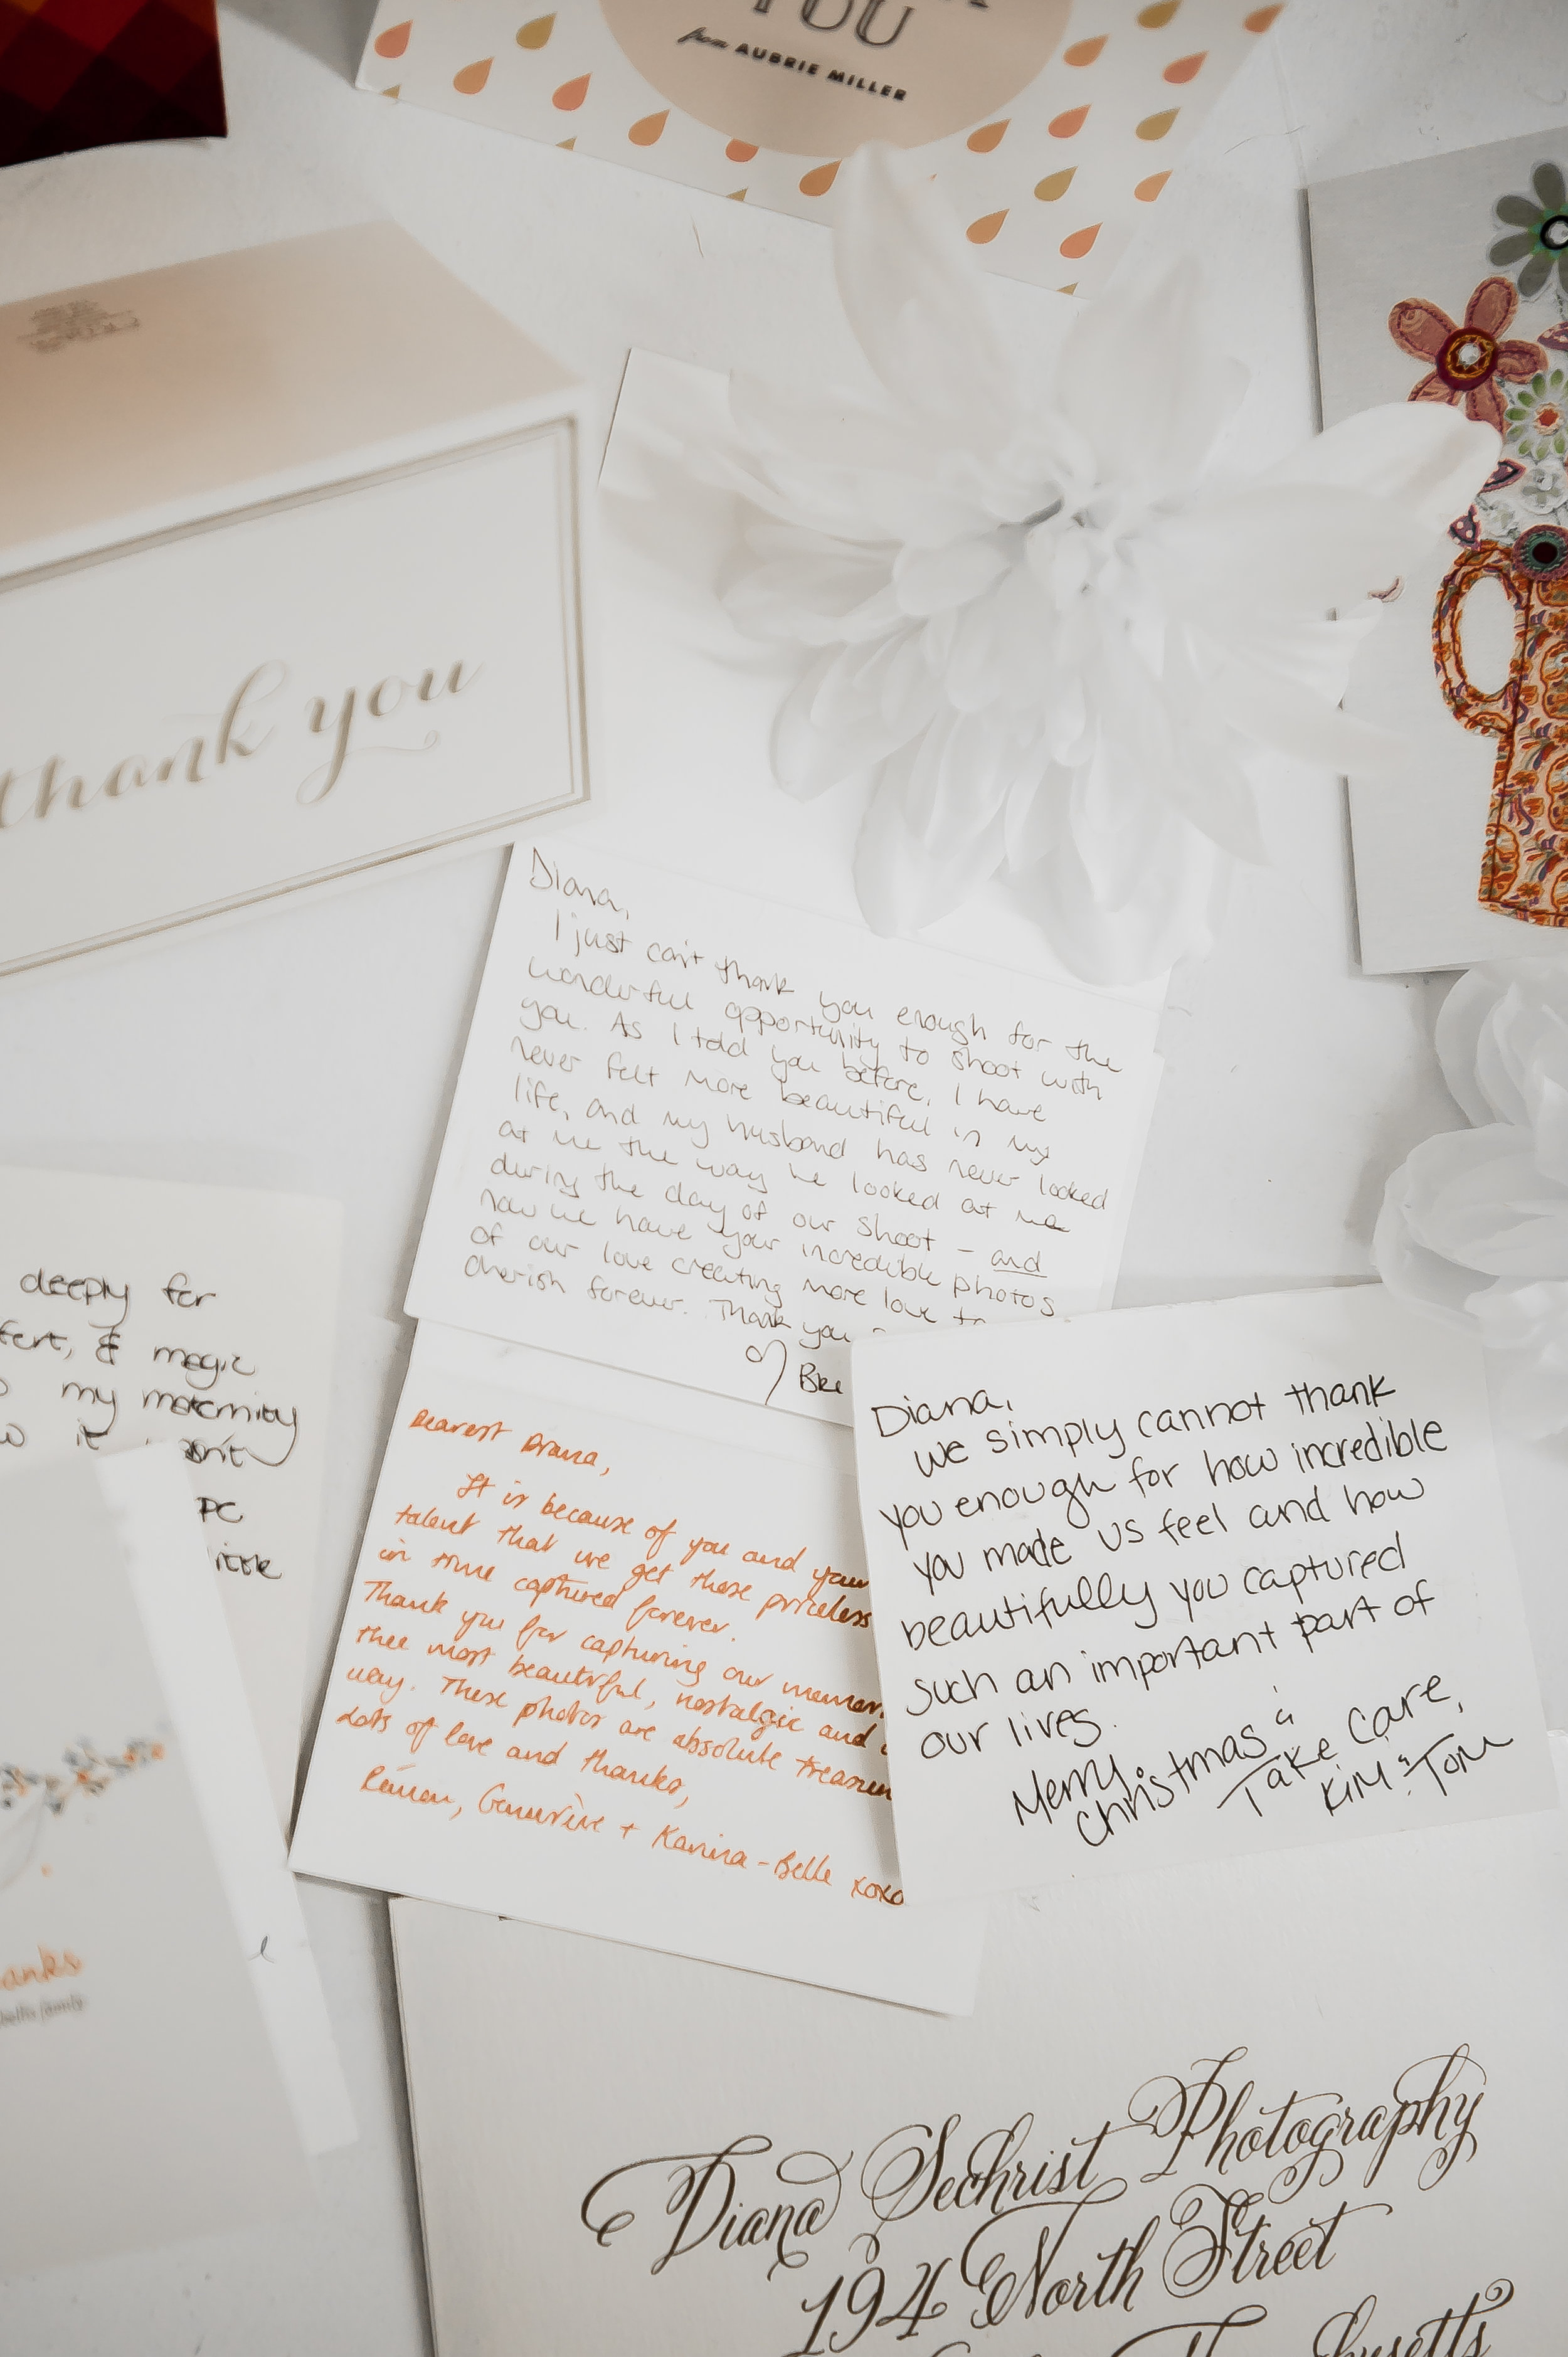 YOU
from AUBRIE MILLER
thank you
Diana,
I just can't thank you enough for the
wonderful opportunity to shoot with
you. As I told you before, I have
never felt more beautiful in my
life, and my husband has never looked
at me the way he looked at me
during the day of our shoot - and
now we have your incredible photos
of our love creating more love to
cherish forever. Thank you
Bre
deeply for
fort, & magic
my maternity
it
PC
little
Dearest Diana,
It is because of you and your
talent that we get these priceless
in time captured forever.
Thank you for capturing our
thee most beautiful, nostalgic and
way. These photos are absolute
Lots of love and thanks,
Genevieve + Karina-Belle xoxo
Diana,
we simply cannot thank
you enough for how incredible
you made us feel and how
beautifully you captured
such an important part of
our lives.
Merry
Christmas
Take care,
Kim & Tom
anks
family
Diana Sechrist Photography
194 North Street